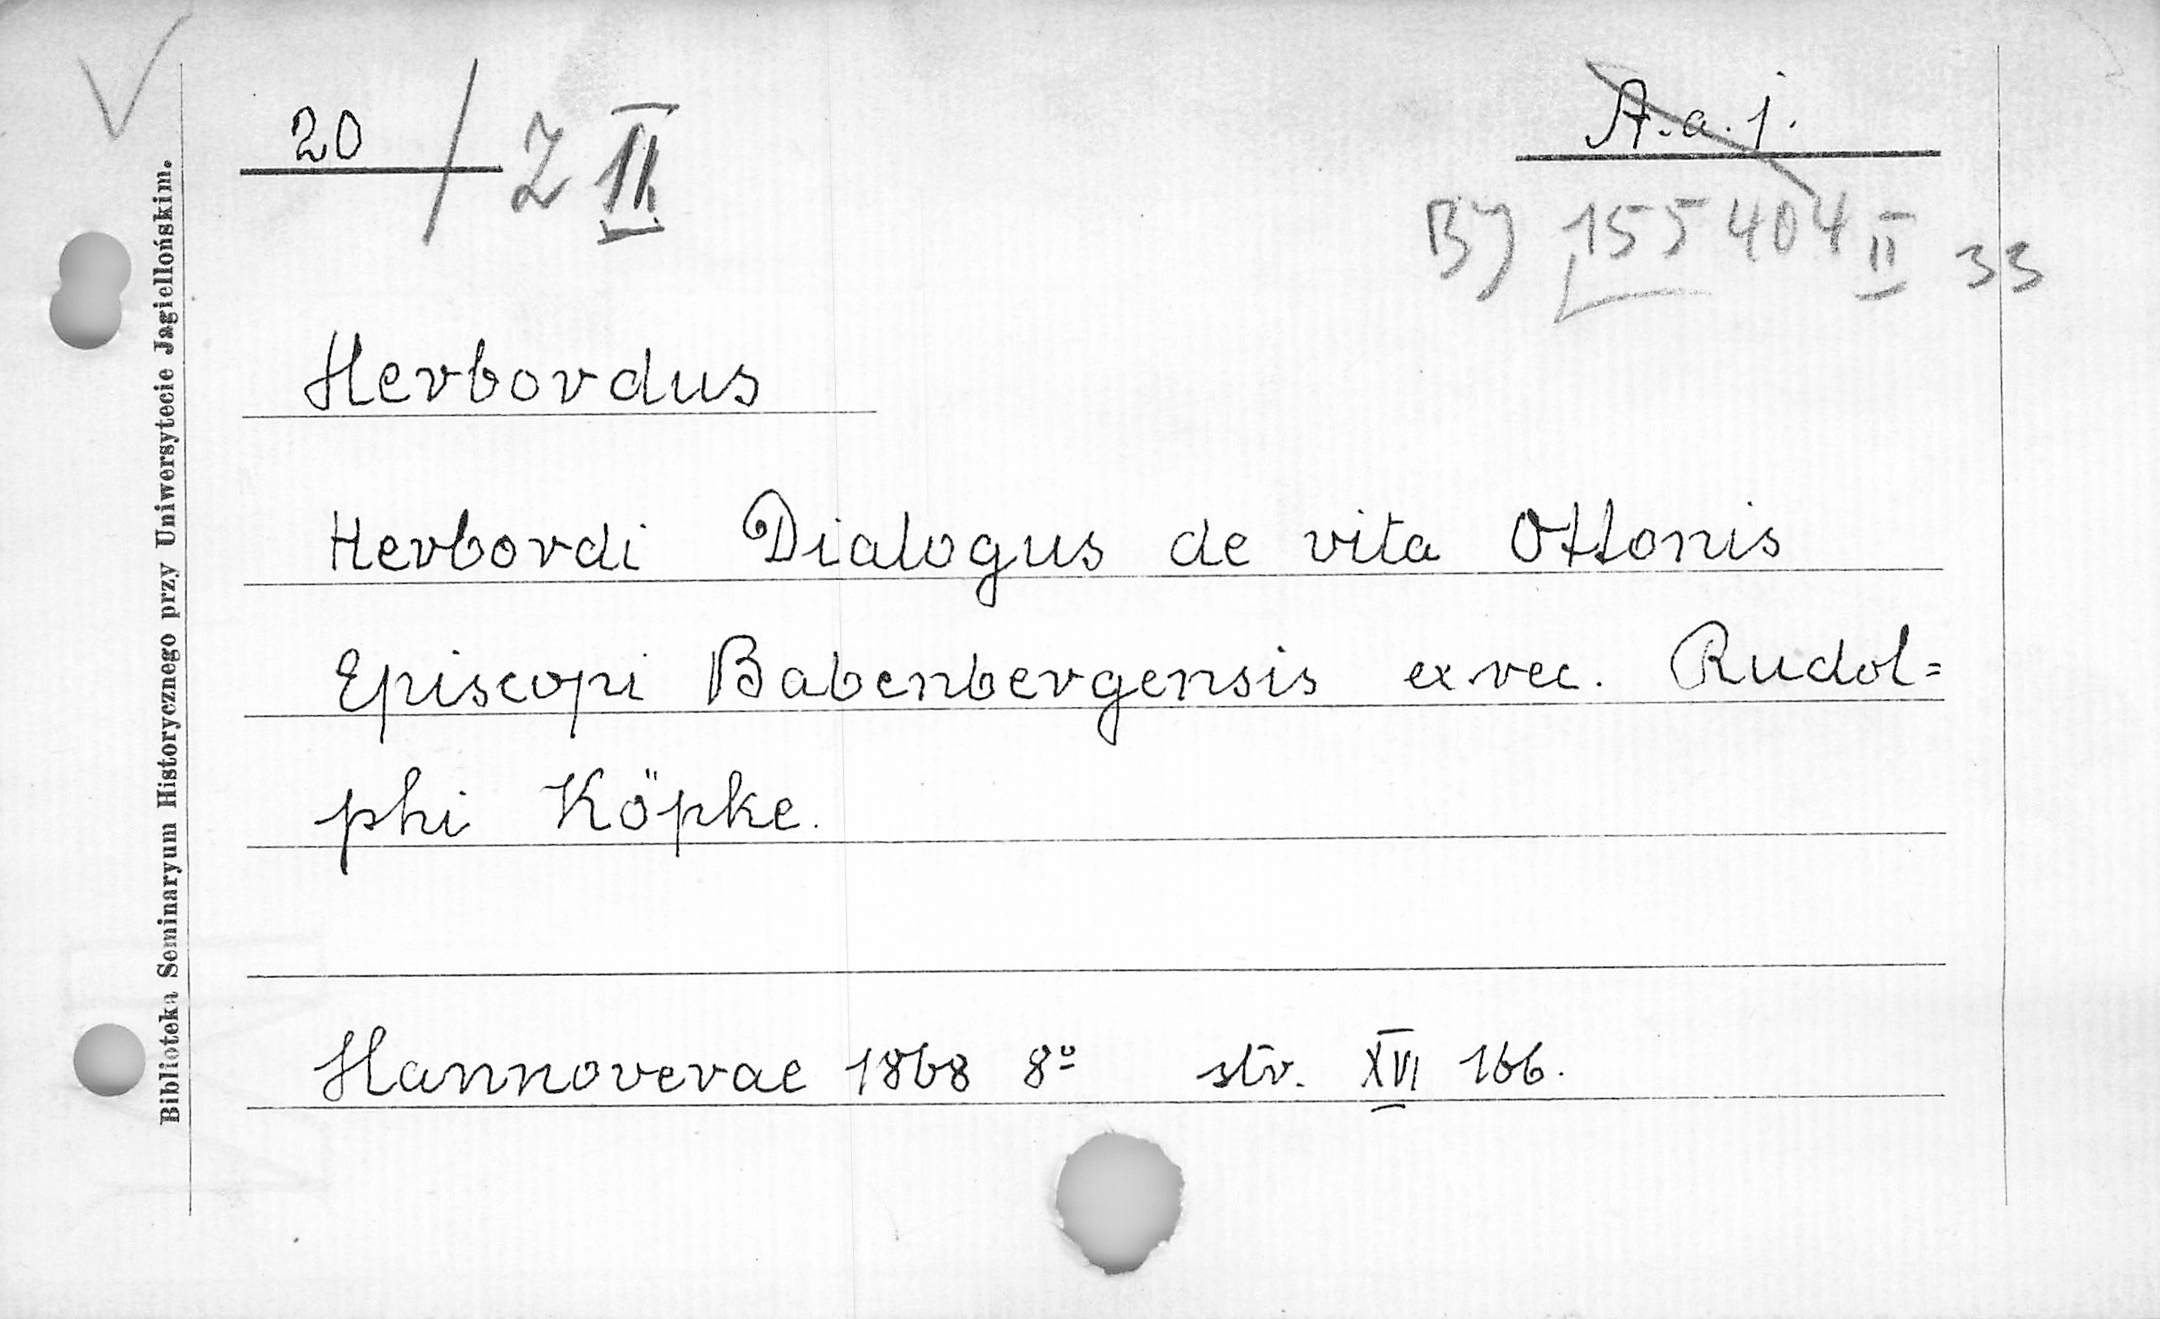 20 / Z II
A. a. j.
BJ 155404 II 33
Herbordus
Herbordi Dialogus de vita Ottonis
Episcopi Babenbergensis ex rec. Rudol=
phi Köpke.
Hannoverae 1868 8º str. XVI 166.
Biblioteka Seminaryum Historycznego przy Uniwersytecie Jagiellońskim.